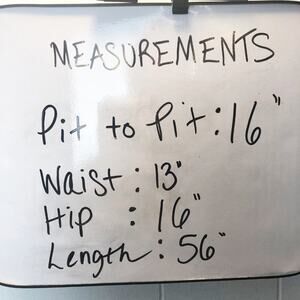 MEASUREMENTS
Pit to Pit: 16"
Waist: 13"
Hip : 16"
Length: 56"